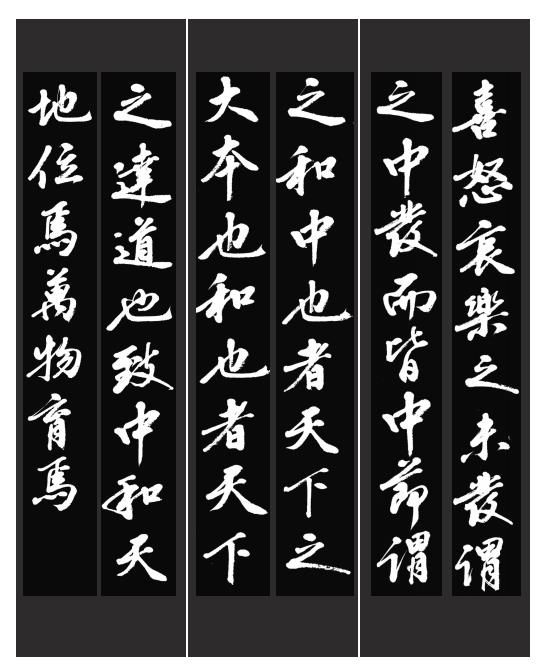 喜怒哀樂之未發謂
之中發而皆中節謂
之和中也者天下之
大本也和也者天下
之達道也致中和天
地位焉萬物育焉